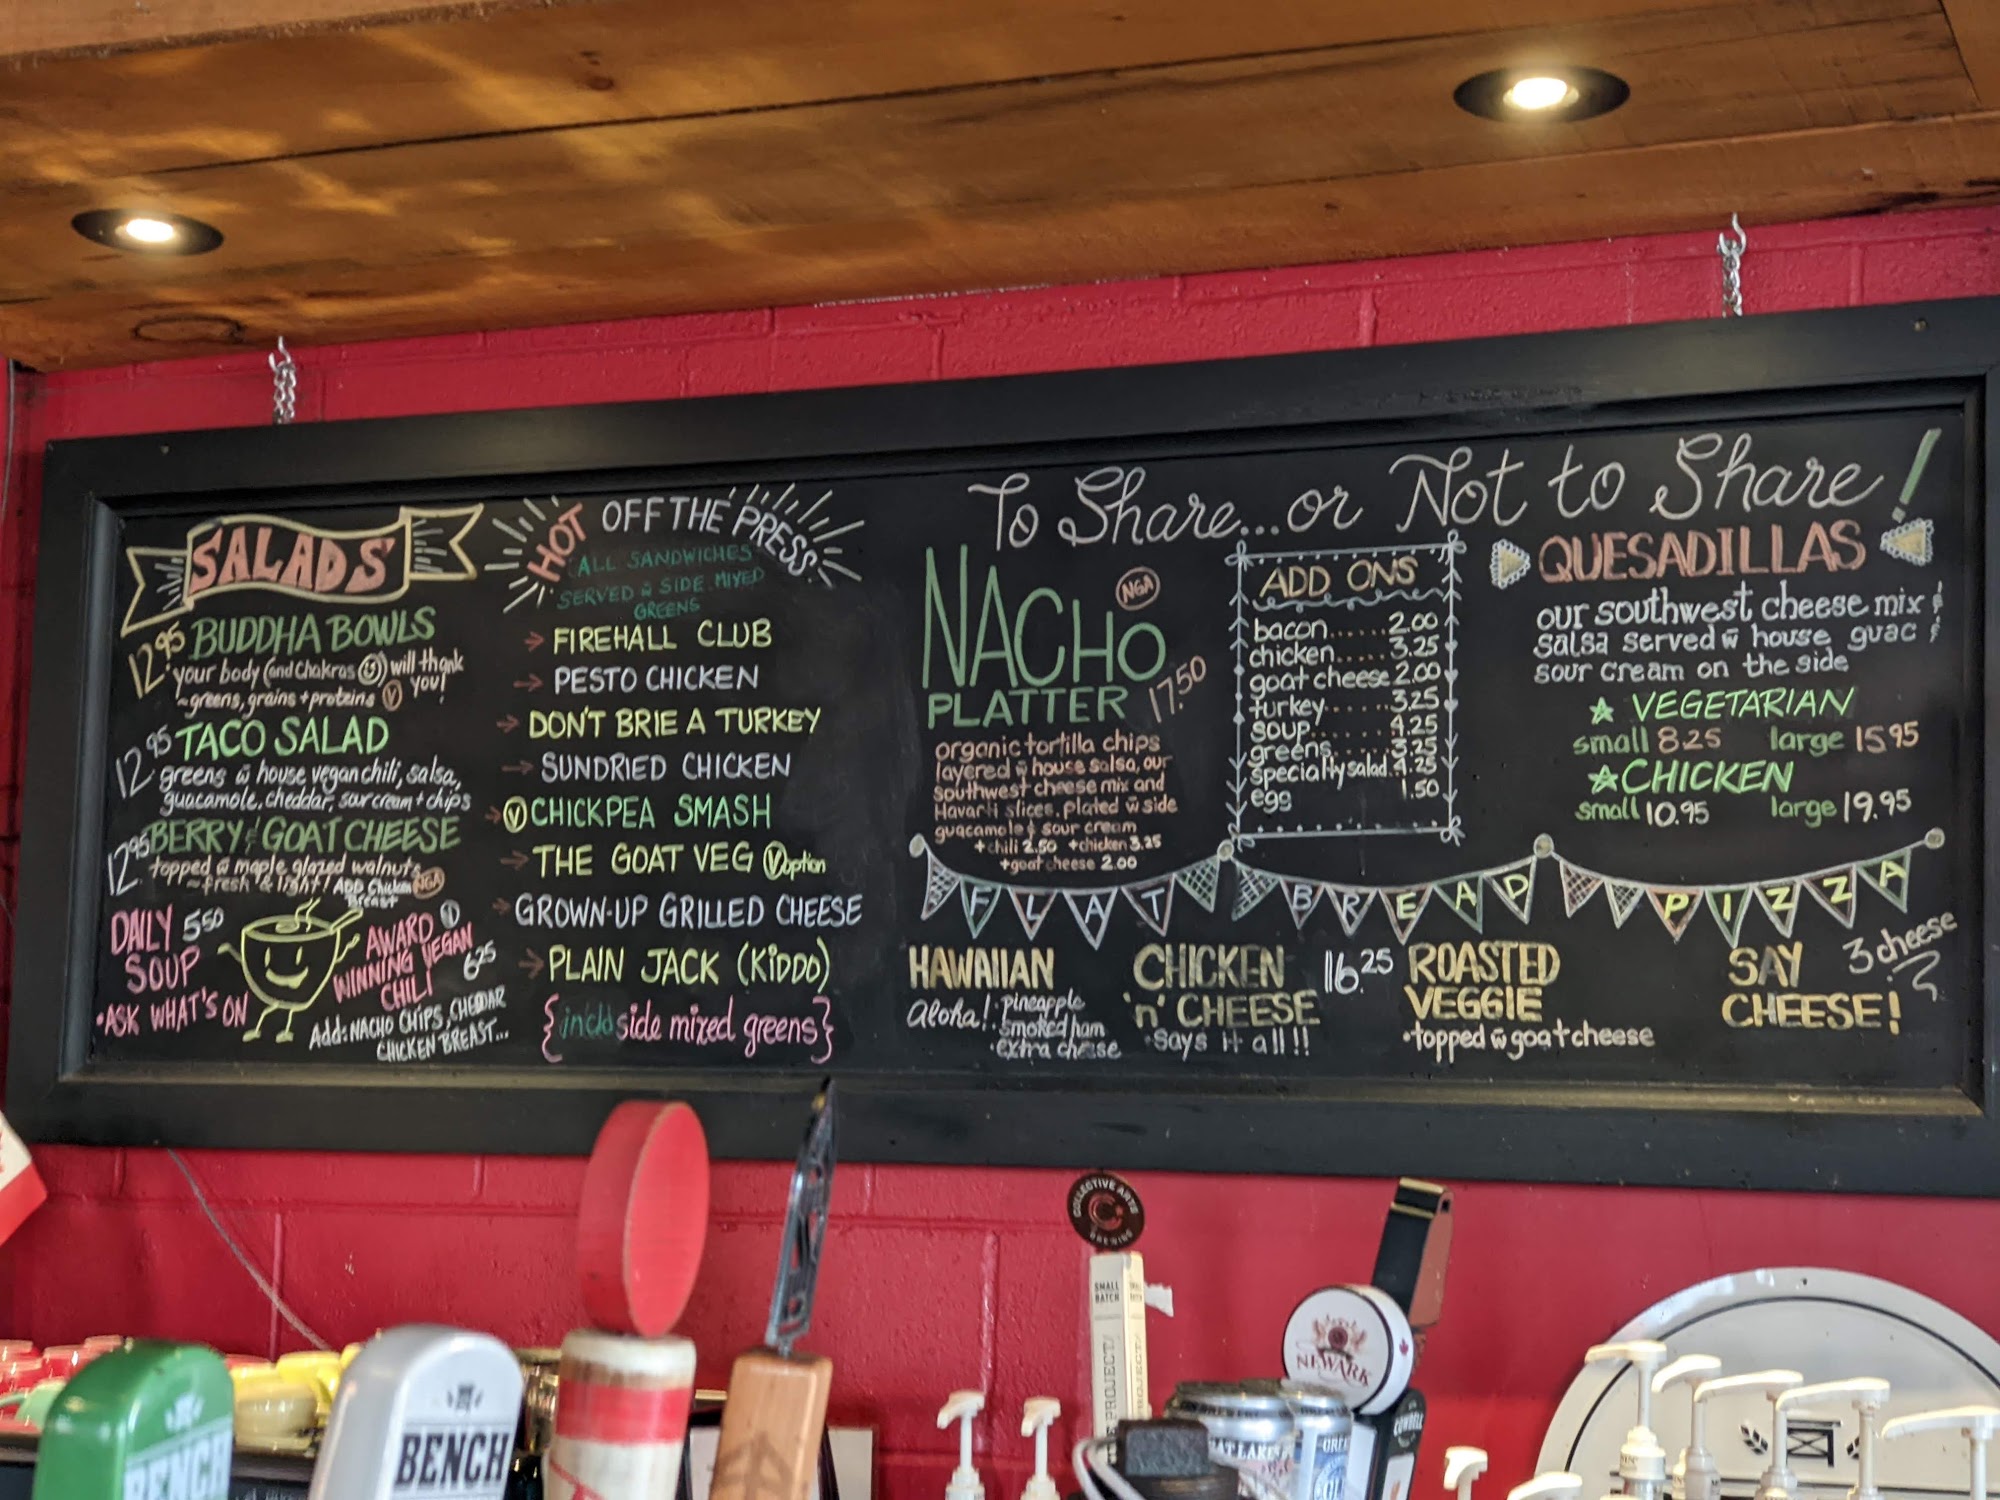 SALADS
12.95 BUDDHA BOWLS
your body (and chakras ☺) will thank you!
~greens, grains + proteins Ⓥ
12.95 TACO SALAD
greens w̄ house vegan chili, salsa,
guacamole, cheddar, sour cream + chips
12.95 BERRY & GOAT CHEESE
topped w̄ maple glazed walnuts
~fresh & light! ADD Chicken Breast NGA
DAILY 5.50
SOUP
•ASK WHAT'S ON
AWARD Ⓥ
WINNING VEGAN
CHILI 6.25
Add: NACHO CHIPS, CHEDDAR
CHICKEN BREAST...
HOT OFF THE PRESS!
ALL SANDWICHES
SERVED w̄ SIDE MIXED
GREENS
→ FIREHALL CLUB
→ PESTO CHICKEN
→ DON'T BRIE A TURKEY
→ SUNDRIED CHICKEN
→ Ⓥ CHICKPEA SMASH
→ THE GOAT VEG Ⓥ option
→ GROWN-UP GRILLED CHEESE
→ PLAIN JACK (KiDDO)
{incld side mixed greens}
To Share...or Not to Share!
NACHO NGA
PLATTER 17.50
organic tortilla chips
layered w̄ house salsa, our
southwest cheese mix and
Havarti slices. plated w̄ side
guacamole & sour cream
+chili 2.50 +chicken 3.25
+goat cheese 2.00
ADD ONS
bacon......2.00
chicken.....3.25
goat cheese 2.00
turkey......3.25
soup.......4.25
greens.....3.25
specialty salad..4.25
egg 1.50
QUESADILLAS
our southwest cheese mix &
salsa served w̄ house guac &
sour cream on the side
☆ VEGETARIAN
small 8.25 large 15.95
☆ CHICKEN
small 10.95 large 19.95
FLAT BREAD PIZZA
HAWAIIAN
Aloha! •pineapple
•smoked ham
•extra cheese
CHICKEN
'n' CHEESE 16.25
•says it all!!
ROASTED
VEGGIE
•topped w̄ goat cheese
SAY
CHEESE! 3 cheese
COLLECTIVE ARTS
BREWING
SMALL
BATCH
PROJECT
NEWARK
BENCH
BENCH